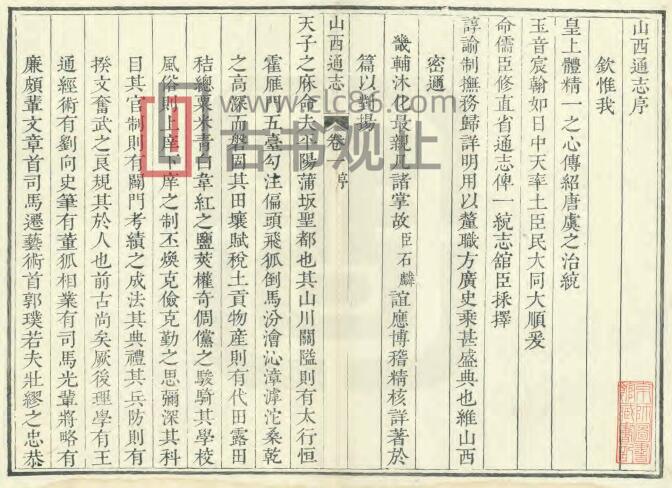 山西通志序
欽惟我
皇上體精一之心傳紹唐虞之治統
玉音宸翰如日中天率土臣民大同大順爰
命儒臣修直省通志俾一統志館臣採擇
諄諭制撫務歸詳明用以釐職方廣史乘甚盛典也維山西
密邇
畿輔沐化最親凡諸掌故臣石麟誼應博稽精核詳著於
篇以對揚
山西通志 卷一 序
天子之庥命夫平陽蒲坂聖都也其山川關隘則有太行恒
霍雁門五臺勾注偏頭飛狐倒馬汾澮沁漳滹沱桑乾
之高深而盤固其田壤賦稅土貢物產則有代田露田
秸總粟米青白韋紅之鹽莢權奇倜儻之駿騎其學校
風俗則上庠下庠之制丕煥克儉克勤之思彌深其科
目其官制則有闢門考績之成法其典禮其兵防則有
揆文奮武之良規其於人也前古尚矣厥後理學有王
通經術有劉向史筆有董狐相業有司馬光輩將略有
廉頗輩文章首司馬遷藝術首郭璞若夫壯繆之忠恭
www.clc86.com
古书观止